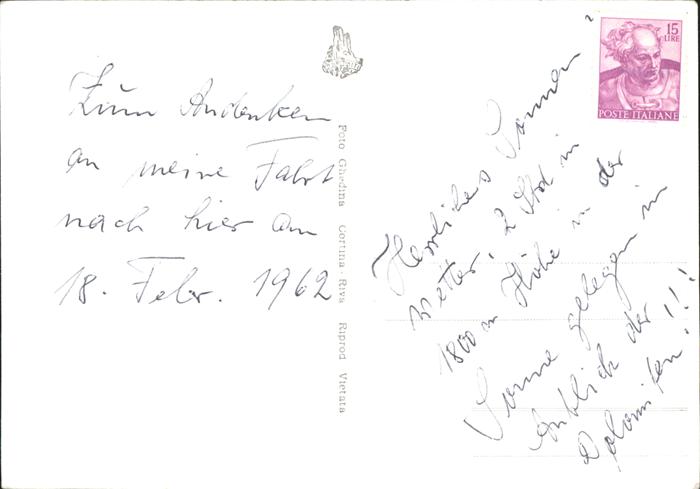 Zum Andenken
an meine Fahrt
nach hier am
18. Febr. 1962
Foto Ghedina Cortina - Riva Riprod Vietata
Herrliches Sonnen
wetter, 2 Std in
1800 m Höhe in der
Sonne gelegen im
Anblick der
Dolomiten!!!
15
LIRE
POSTE ITALIANE